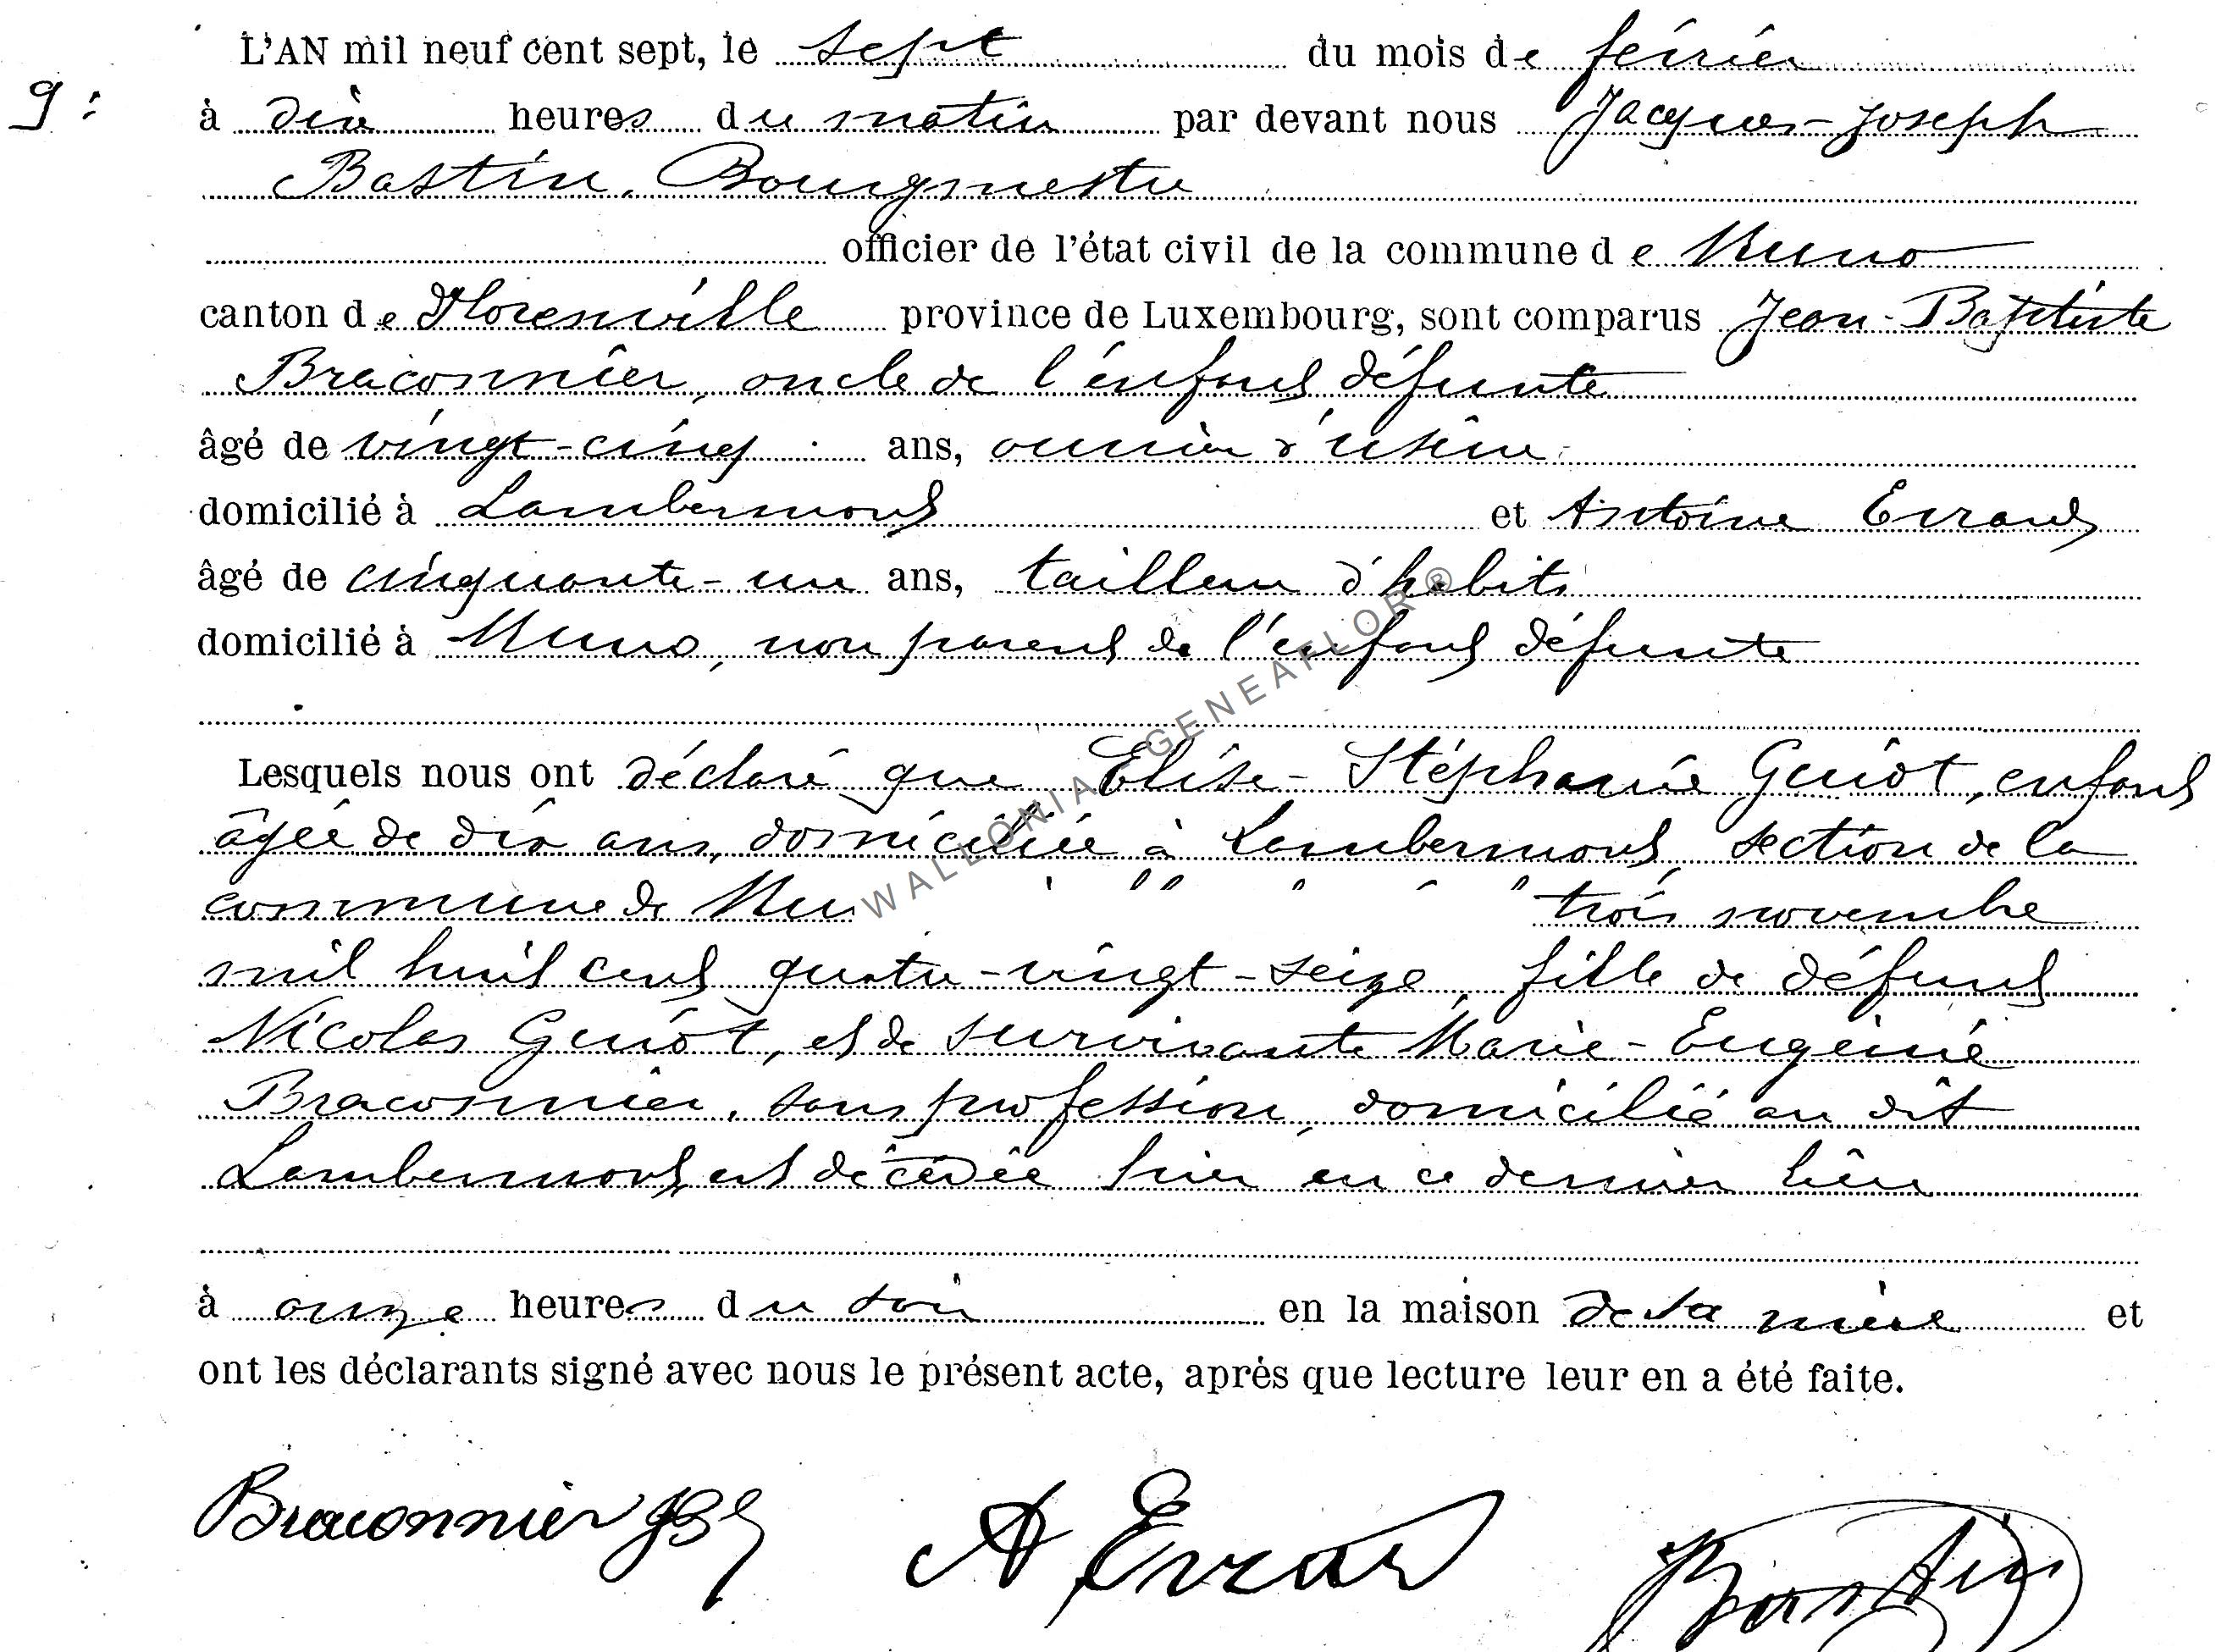 L'AN mil neuf cent sept, le sept du mois de février
9: à dix heures du matin par devant nous Jacques-Joseph
Bastin, Bourgmestre
officier de l'état civil de la commune de Muno
canton de Florenville province de Luxembourg, sont comparus Jean-Baptiste
Braconnier, oncle de l'enfant défunte
âgé de vingt-cinq ans, ouvrier d'usine
domicilié à Lambermont et Antoine
âgé de cinquante-un ans, tailleur d'habits
domicilié à Muno, non parent de l'enfant défunte
Lesquels nous ont déclaré que Elise-Stéphanie Guiot, enfant
âgée de dix ans, domiciliée à Lambermont, section de la
commune de trois novembre
mil huit cent quatre-vingt-seize, fille de défunt
Nicolas Guiot, et de survivante Marie-Eugénie
Braconnier, sans profession, domicilié au dit
Lambermont, est décédée hier en ce dernier lieu
à onze heures du soir en la maison de sa mère et
ont les déclarants signé avec nous le présent acte, après que lecture leur en a été faite.
Braconnier A Bastin
WALLONIA - GENEAFLOR ®